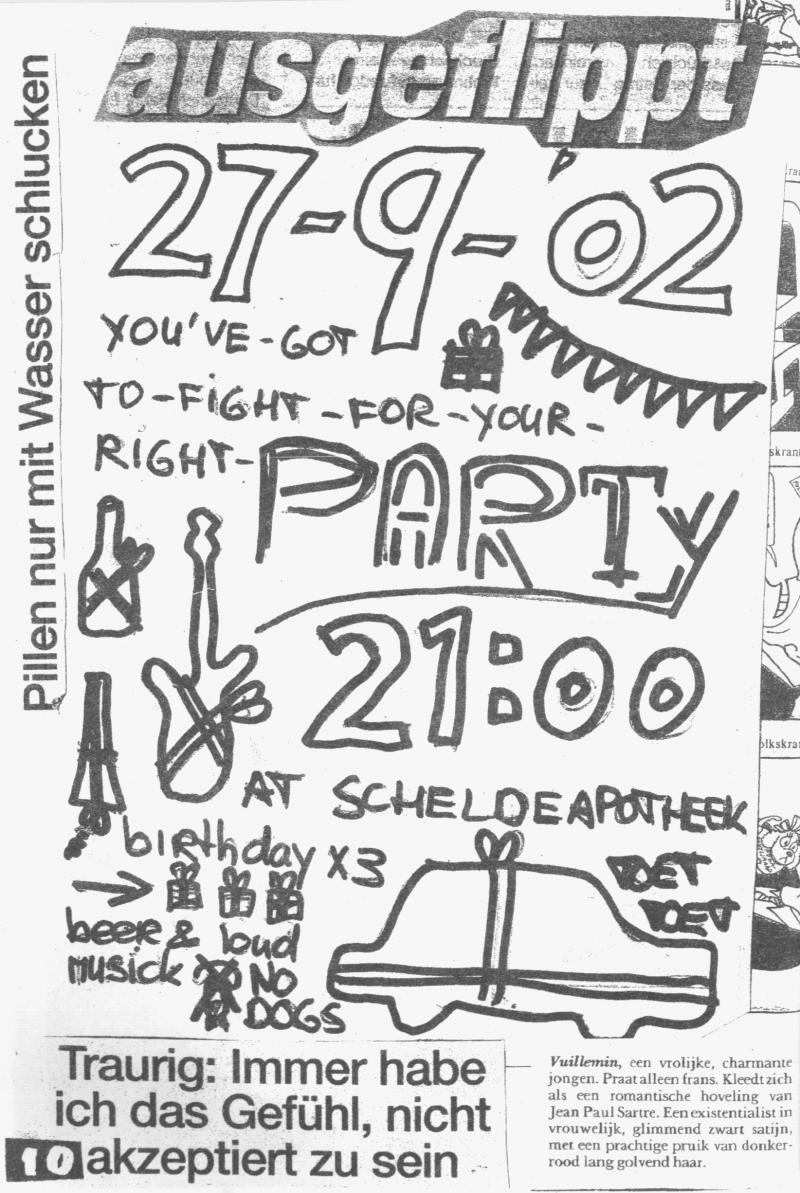 ausgeflippt
Pillen nur mit Wasser schlucken
27-9-'02
YOU'VE-GOT
TO-FIGHT-FOR-YOUR-
RIGHT-PARTY
21:00
AT SCHELDEAPOTHEEK
birthday X3
beer & loud
musick NO
DOGS
TOET
TOET
Traurig: Immer habe
ich das Gefühl, nicht
10 akzeptiert zu sein
Vuillemin, een vrolijke, charmante
jongen. Praat alleen frans. Kleedt zich
als een romantische hoveling van
Jean Paul Sartre. Een existentialist in
vrouwelijk, glimmend zwart satijn,
met een prachtige pruik van donker-
rood lang golvend haar.